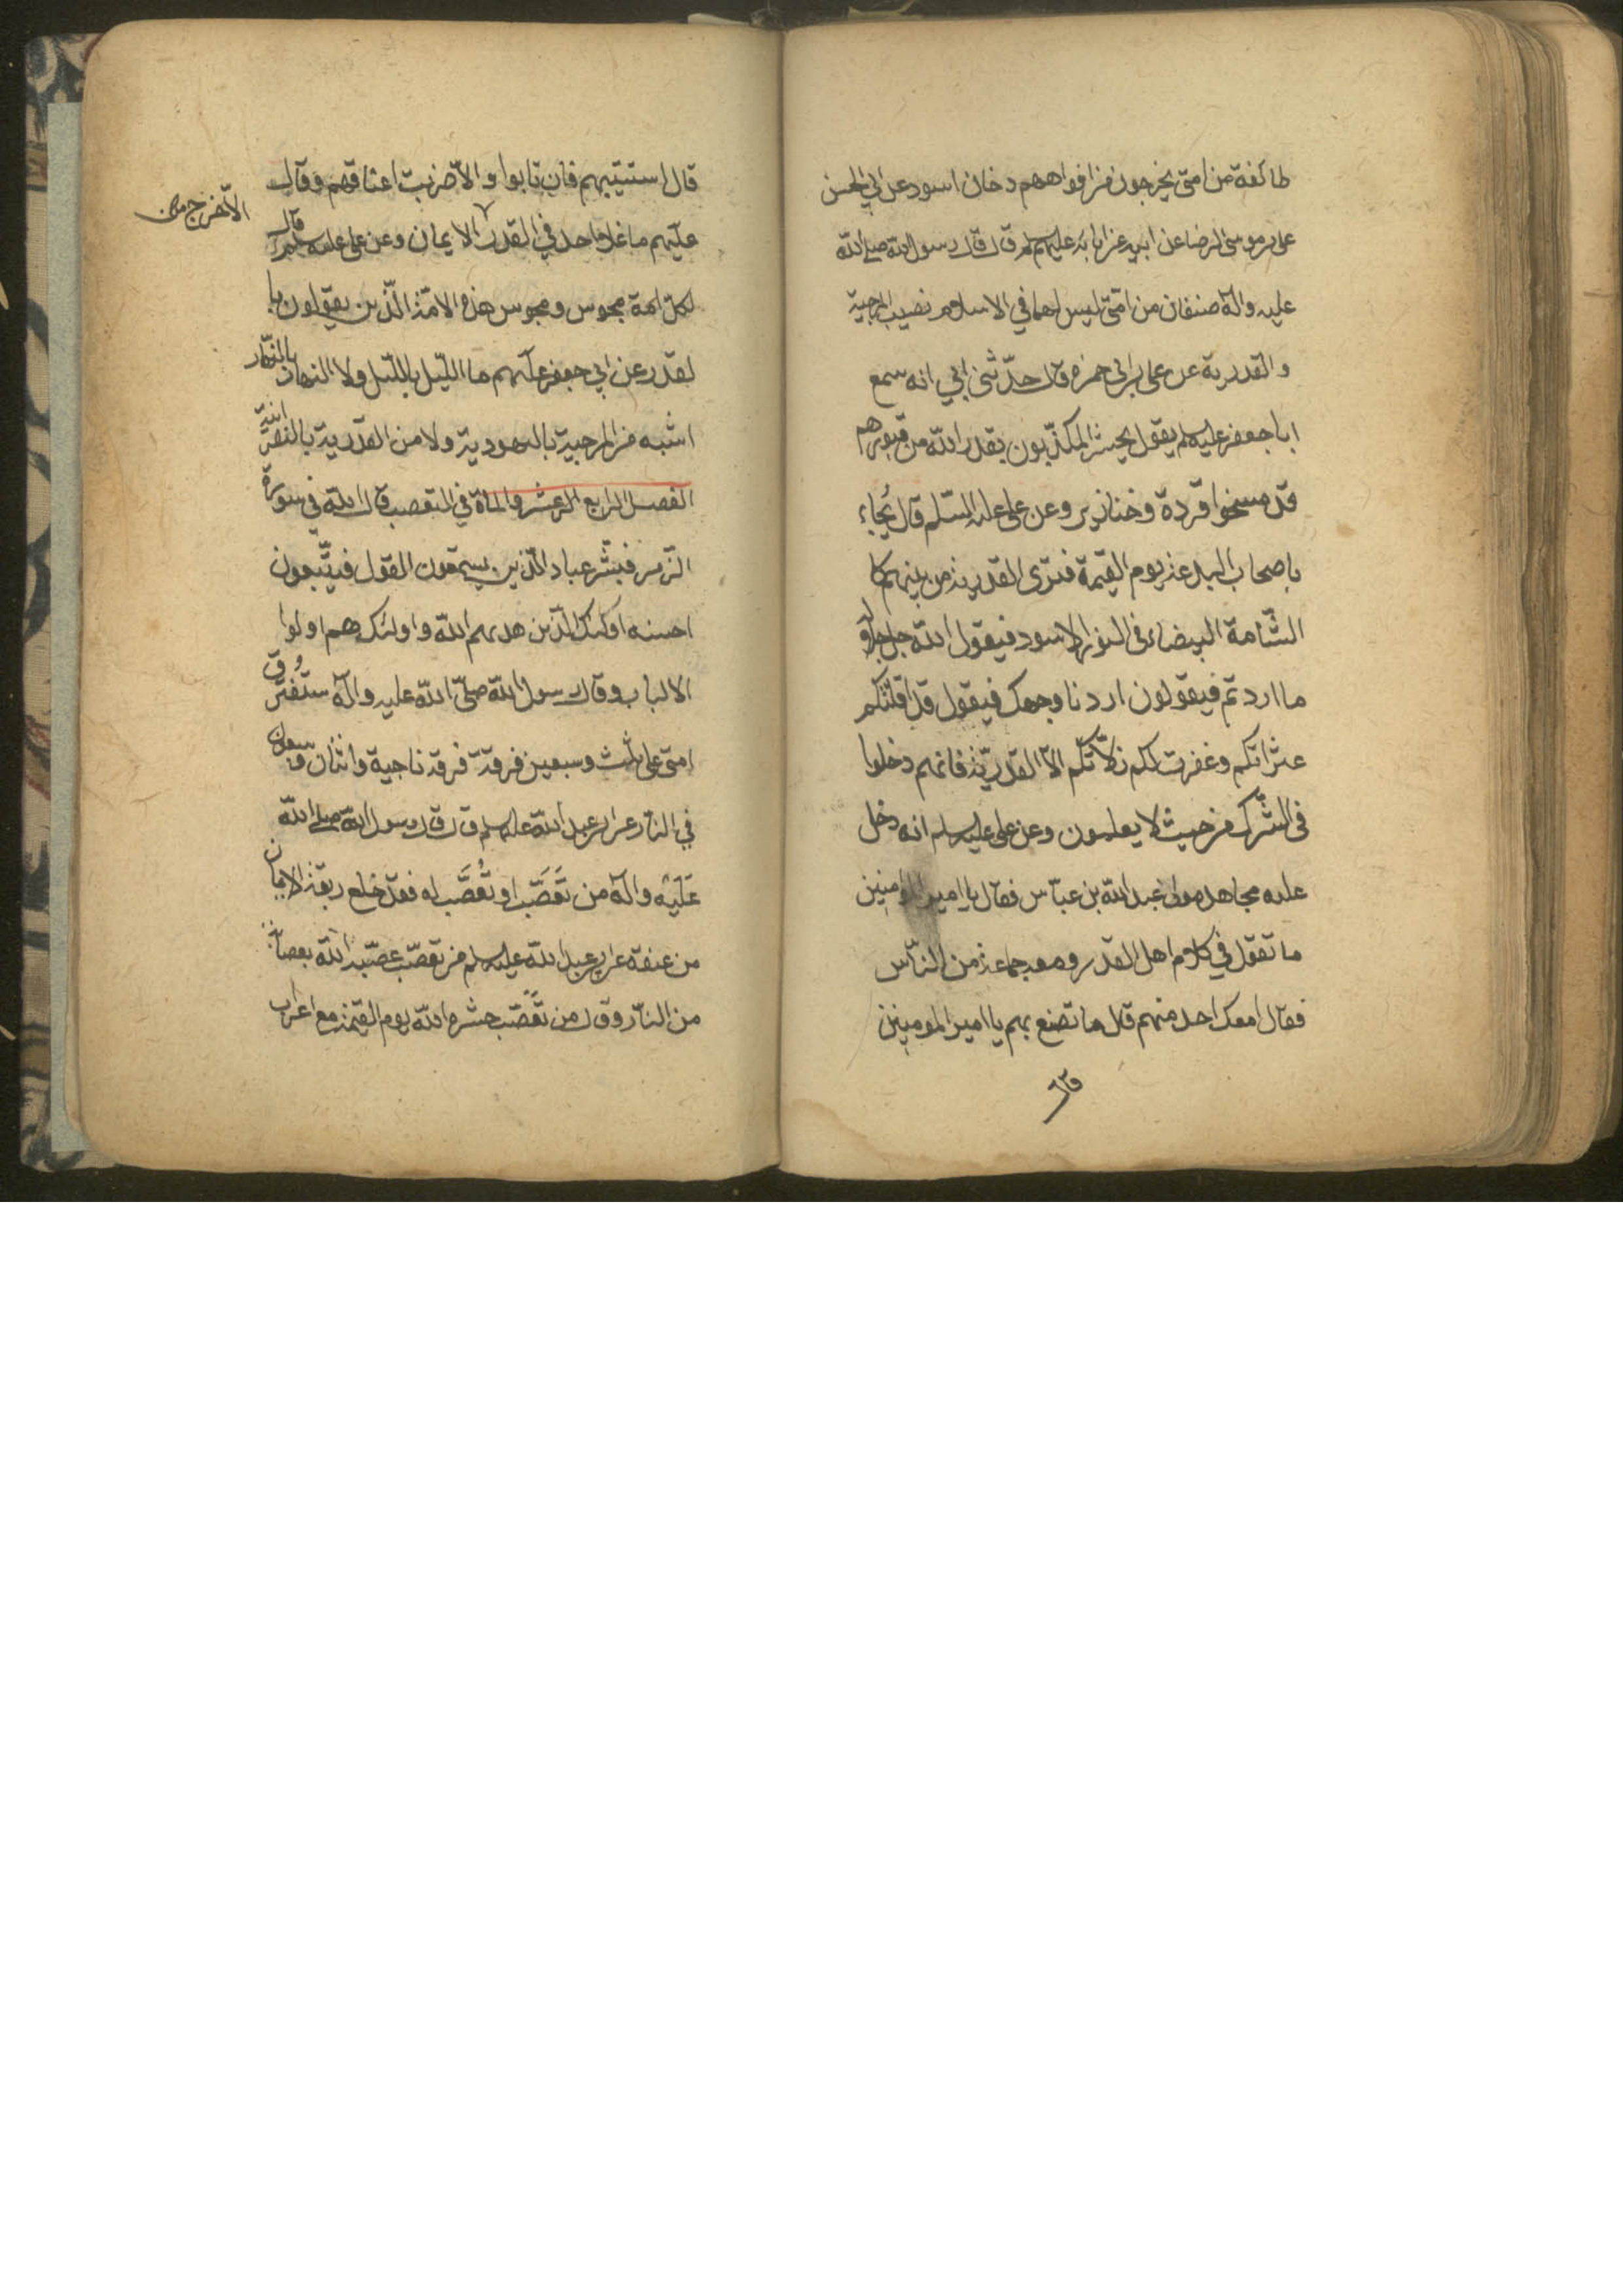 طائفة من امتى يخرجون من افواههم دخان اسود عن ابي الحسن
على بن موسى الرضا عن ابيه عن ابائه عليهم سلم قال قال رسول الله صلى الله
عليه وآله صنفان من امتى ليس لهما في الاسلام نصيب المرجية
والقدرية عن على بن ابى حمزه قال حدّثنى ابي انه سمع
ابا جعفر عليه سلم يقول يحشر المكذّبون بقدر الله من قبورهم
قد مسخوا قردة وخنازير وعن على عليه السّلم قال يُجاء
باصحاب البدعة يوم القيمة فترى القدرية من بينهم كا
الشّامة البيضاء فى الثور الاسود فيقول الله جل جلاله
ما اردتم فيقولون اردنا وجهك فيقول قد اقلتكم
عثراتكم وغفرت لكم زلّاتكم الّا القدريّة فانهم دخلوا
فى الشّرك من حيث لا يعلمون وعن على عليه سلم انه دخل
عليه مجاهد مولى عبد الله بن عبّاس فقال يا امير المومنين
ما تقول في كلام اهل القدر ومعه جماعة من النّاس
فقال امعك احد منهم قال ما تصنع بهم يا امير المومنين
قال
قال استتيبهم فان تابوا والّا ضربت اعناقهم وقال
عليهم ما غلا احد في القدر الّا خرج من الايمان وعن على عليه سلم قال
لكلّ امة مجوس ومجوس هذه الامّة الّذين يقولون با
لقدر عن ابي جعفر عليهم ما اللّيل باللّيل ولا النهار بالنّهار
اشبه من المرجية باليهودية ولا من القدرية بالنصرّانيّة
الفصل الرابع العشر والمأة في التعصب قال الله فى سورة
الزّمر فبشّر عباد الّذين يستمعون القول فيتّبعون
احسنه اولئك الّذين هديهم الله واولئك هم اولوا
الالباب وقال رسول الله صلّى الله عليه وآله ستفترُق
امتى على ثلث وسبعين فرقة فرقة ناجية واثنان وسبعون
في النّار عن ابى عبد الله عليه سلم قال قال رسول الله صلى الله
عَلَيْه وآله من تَعَصَّبَ او تُعُصَّب له فقد خلع ربقة الايمان
من عنقه عن ابى عبد الله عليه سلم من تعصّب عصّبه الله بعصابة
من النّار وقال من تعَصّب حشره الله يوم القيمة مع اعراب